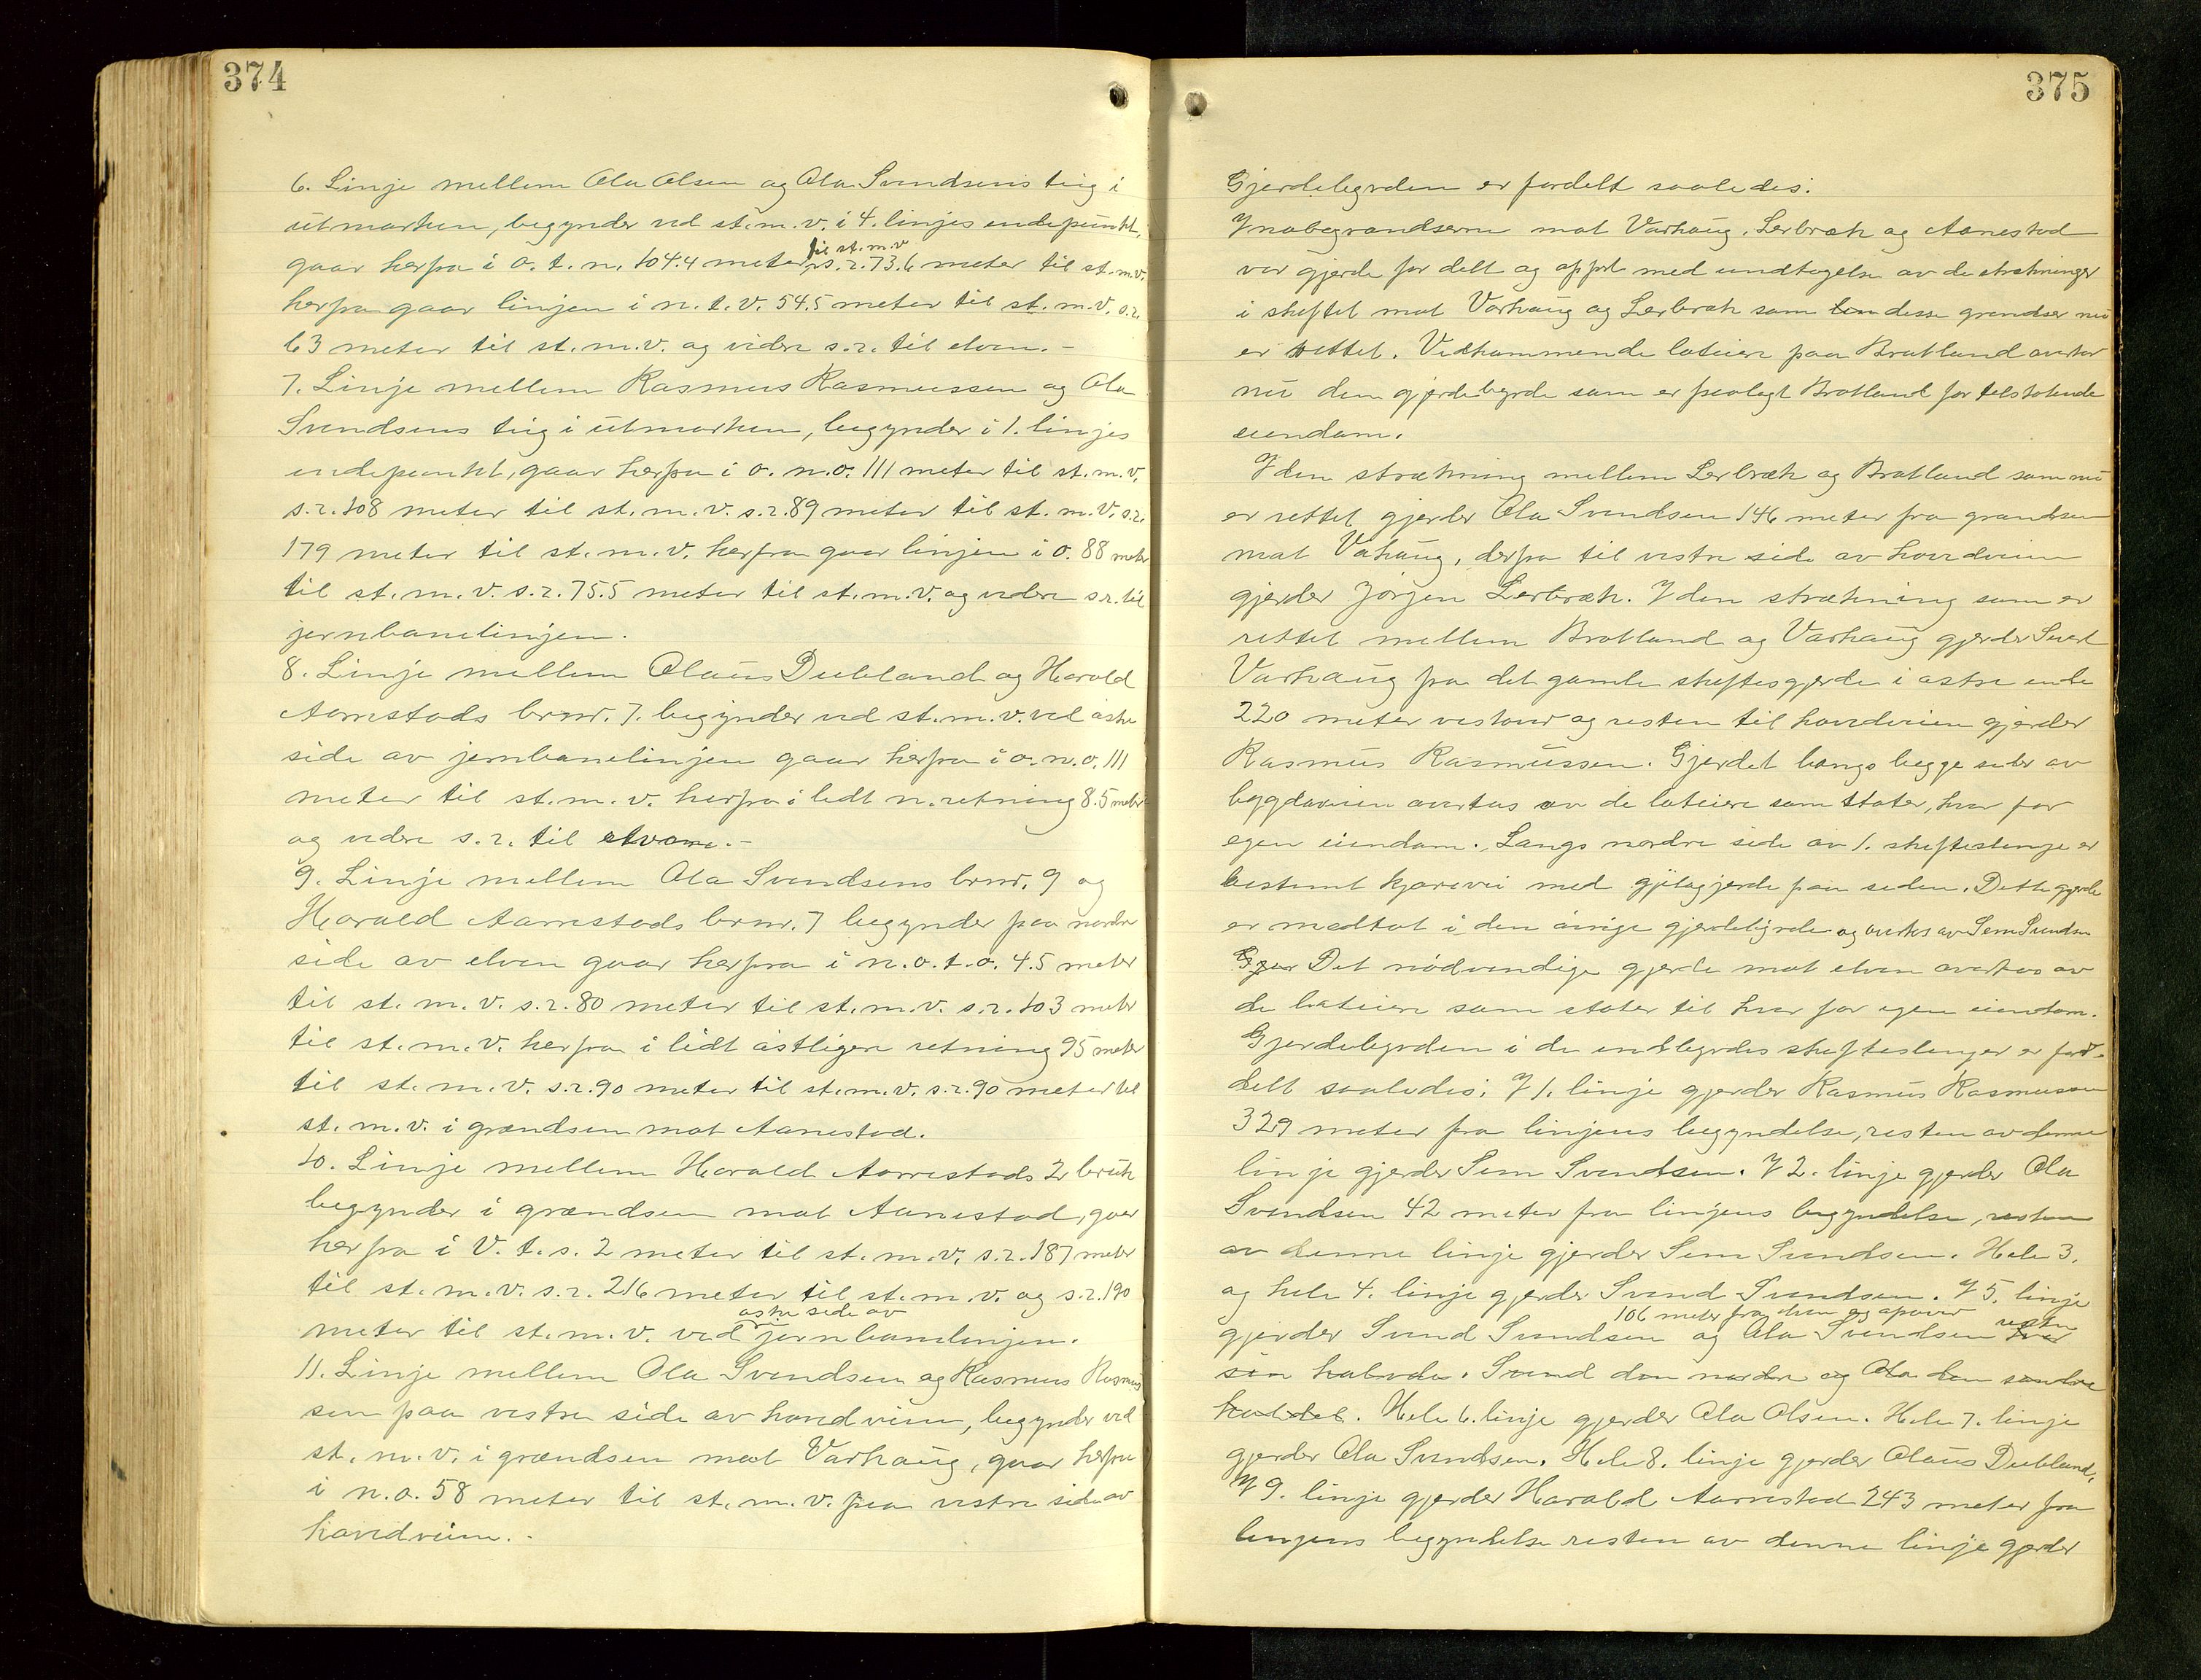 374
6. Linje mellem Ola Olsen og Ola Svendsens teig i
utmarken, begynder ved st.m.v. i 4. linjes endepunkt,
gaar herfra i o. t. n. 104.4 meter til st. m. v s.r. 73.6 meter til st.m.v.
herfra gaar linjen i n. t. v. 54.5 meter til st. m. v. s.r.
63 meter til st. m.v. og videre s.r. til elven. -
7. Linje mellem Rasmus Rasmussen og Ola
Svendsens teig i utmarken, begynder i 1. linjes
endepunkt, gaar herfra i o. n.o. 111 meter til st. m. v.
s.r. 108 meter til st. m. v. s.r. 89 meter til st. m. v. s.r.
179 meter til st. m. v. herfra gaar linjen i o. 88 meter
til st. m. v. s.r. 75.5 meter til st. m. v. og videre s.r. til
jernbanelinjen.
8. Linje mellem Olaus Dubland og Harald
Aarrestads brnr. 7. begynder ved st. m. v. ved østre
side av jernbanelinjen gaar herfra i o. n. o. 111
meter til st. m. v. herfra i lidt n. retning 8.5 meter
og videre s. r. til elven. -
9. Linje mellem Ola Svendsens brnr. 9 og
Harald Aarrestads brnr. 7 begynder paa nordre
side av elven gaar herfra i n. o. t. o. 4.5 meter
til st. m. v. s.r. 80 meter til st. m. v. s.r. 103 meter
til st. m. v. herfra i lidt østligere retning 95 meter
til st. m. v. s.r. 90 meter til st. m. v. s.r. 90 meter til
st. m. v. i grændsen mot Aanestad.
10. Linje mellem Harald Aarrestads 2 bruk
begynder i grændsen mot Aanestad, gaar
herfra i v. t. s. 2 meter til st. m. v. s.r. 187 meter
til st. m. v. s.r. 216 meter til st. m. v. og s.r. 190
meter til st. m. v. ved østre side av jernbanelinjen.
11. Linje mellem Ola Svendsen og Rasmus Rasmus
sen paa vestre side av hovedveien, begynder ved
st. m. v. i grændsen mot Varhaug, gaar herfra
i n. o. 58 meter til st. m. v. paa vestre side av
hovedveien. -
375
Gjerdebyrden er fordelt saaledes:
I nabogrændserne mot Varhaug, Lerbræk og Aanestad
var gjerde fordelt og opført med undtagelse av de strækninger
i skiftet mot Varhaug og Lerbræk som disse grendser nu
er rettet. Vedkommende loteiere paa Bratland overtar
nu den gjerdebyrde som er paalagt Bratland for tilstøtende
eiendom.
I den strækning mellem Lerbræk og Bratland som nu
er rettet gjerder Ola Svendsen 146 meter fra grændsen
mot Vahaug, derfra til vestre side av hovedveien
gjerder Jørgen Lerbræk. I den strækning som er
rettet mellem Bratland og Varhaug gjerder Sivert
Varhaug fra det gamle skiftesgjerde i østre ende
220 meter vestover og resten til hovedveien gjerder
Rasmus Rasmussen. Gjerdet langs begge sider av
bygdaveien overtas av de loteiere som støter, hver for
egen eiendom. Langs nordre side av 1. skifteslinje er
bestemt kjørevei med gjutagjerde paa siden. Dette gjerde
er medtat i den øvrige gjerdebyrde og overtas av Sem Svendsen
Det nødvendige gjerde mot elven overtas av
de loteiere som støter til hver for egen eiendom.
Gjerdebyrden i de indbyrdes skifteslinjer er for-
delt saaledes: I 1. linje gjerder Rasmus Rasmussen
329 meter fra linjens begyndelse, resten av denne
linje gjerder Sem Svendsen. I 2. linje gjerder Ola
Svendsen 42 meter fra linjens begyndelse, resten
av denne linje gjerder Sem Svendsen. Hele 3.
og hele 4. linje gjerder Svend Svendsen. I 5. linje
gjerder Svend Svendsen 106 meter fra elven og opover og Ola Svendsen resten hver
sin halvde. Svend den nordre og Ola den søndre
halvdel. Hele 6. linje gjerder Ola Olsen. Hele 7. linje
gjerder Ola Svendsen. Hele 8. linje gjerder Olaus Dubland.
I 9. linje gjerder Harald Aarrestad 243 meter fra
linjens begyndelse resten av denne linje gjerder